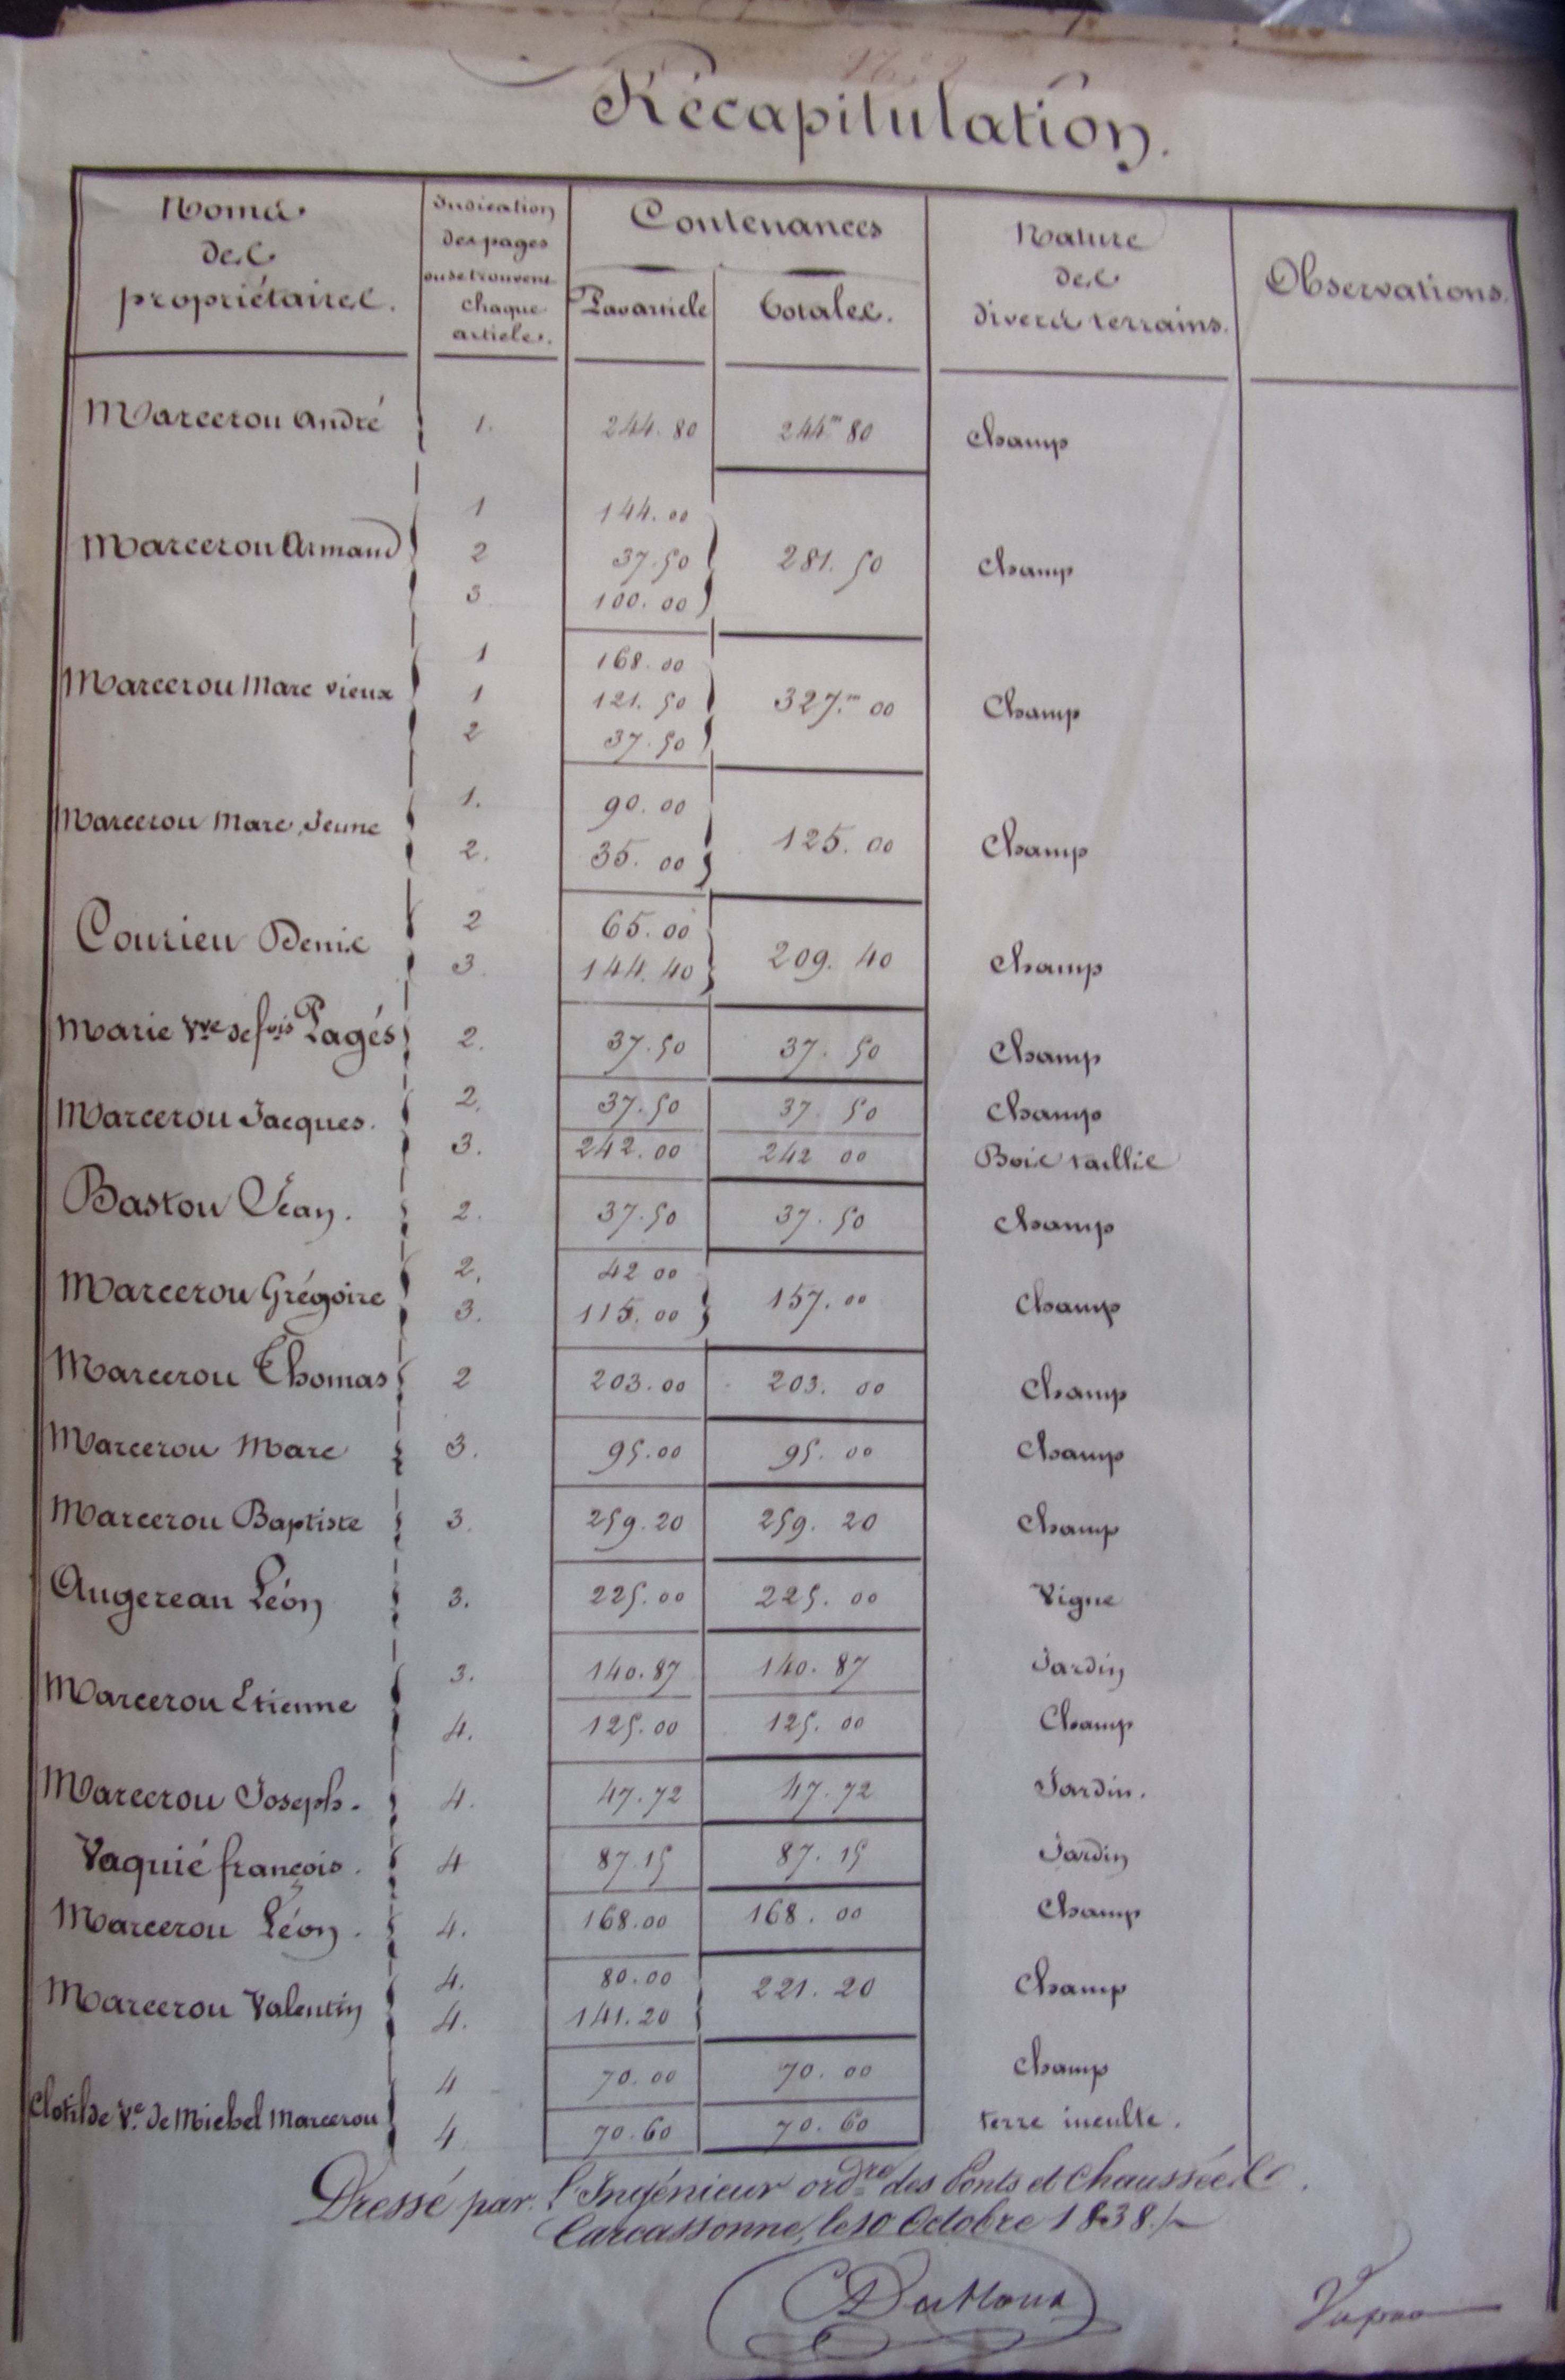 Récapitulation.
Noms des propriétaires.
Indication des pages ou se trouvent chaque article.
Contenances
Par article
Totales.
Nature des divers terrains.
Observations.
Marcerou André 1. 244.80 244m 80 Champ
Marcerou Armand 1 144.00
2 37.50 281.50 Champ
3 100.00
Marcerou Marc vieux 1 168.00
1 121.50 327.m 00 Champ
2 37.50
Marcerou Marc Jeune 1. 90.00 125.00 Champ
2. 35.00
Courieu Denis 2 65.00 209.40 Champ
3. 144.40
Marie Vve de fois Pagés 2. 37.50 37.50 Champ
Marcerou Jacques. 2. 37.50 37.50 Champ
3. 242.00 242 00 Bois taillis
Bastou Jean. 2. 37.50 37.50 Champ
Marcerou Grégoire 2. 42 00 157.00 Champ
3. 115.00
Marcerou Thomas 2 203.00 203.00 Champ
Marcerou Marc 3. 95.00 95.00 Champ
Marcerou Baptiste 3. 259.20 259.20 Champ
Augereau Léon 3. 225.00 225.00 Vigne
Marcerou Etienne 3. 140.87 140.87 Jardin
4. 125.00 125.00 Champ
Marcerou Joseph. 4. 47.72 47.72 Jardin.
Vaquié françois. 4 87.15 87.15 Jardin
Marcerou Léon. 4. 168.00 168.00 Champ
Marcerou Valentin 4. 80.00 221.20 Champ
4. 141.20
Clotilde Ve. de Michel Marcerou 4 70.00 70.00 Champ
4 70.60 70.60 terre inculte.
Dressé par l'Ingénieur ordre des Ponts et Chaussées.
Carcassonne, le 10 Octobre 1838./.